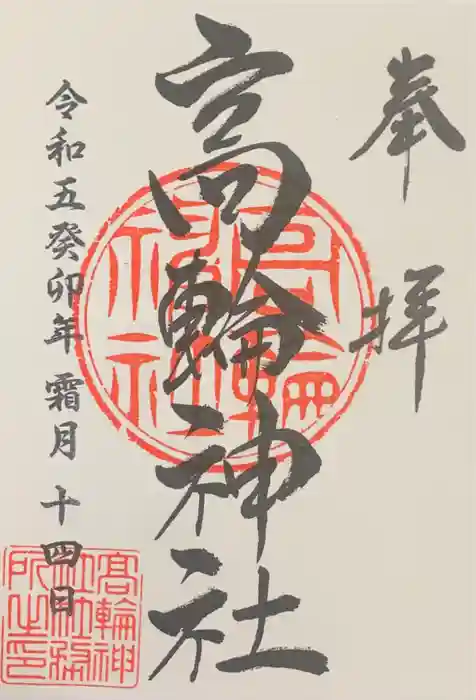 奉拝
高輪神社
令和五癸卯年 霜月 十四日
高輪神社
高輪神社社務所之印